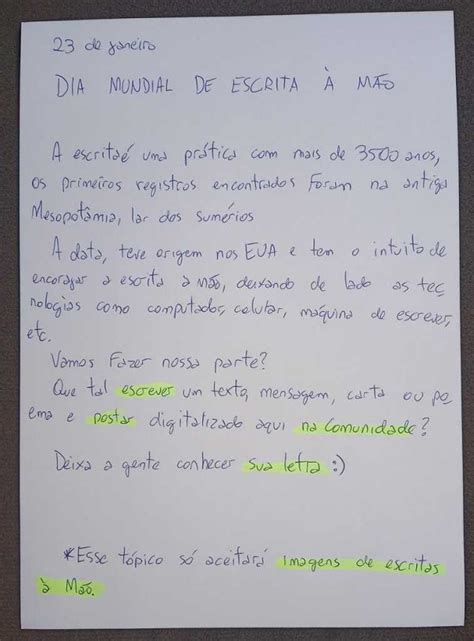 23 de janeiro
DIA MUNDIAL DE ESCRITA À MÃO
A escrita é uma prática com mais de 3500 anos,
os primeiros registros encontrados foram na antiga
Mesopotâmia, lar dos sumérios
A data, teve origem nos EUA e tem o intuito de
encorajar a escrita à mão, deixando de lado as tec
nologias como computador, celular, máquina de escrever,
etc.
Vamos fazer nossa parte?
Que tal escrever um texto, mensagem, carta ou po
ema e postar digitalizado aqui na comunidade?
Deixa a gente conhecer sua letra :)
*Esse tópico só aceitará imagens de escritas
à Mão.